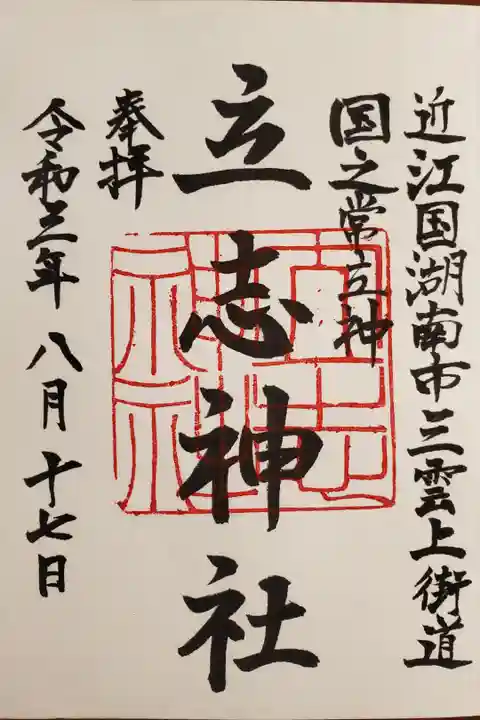 近江国湖南市三雲上街道
国之常立神
立志神社
奉拝
令和三年八月十七日
立志神社